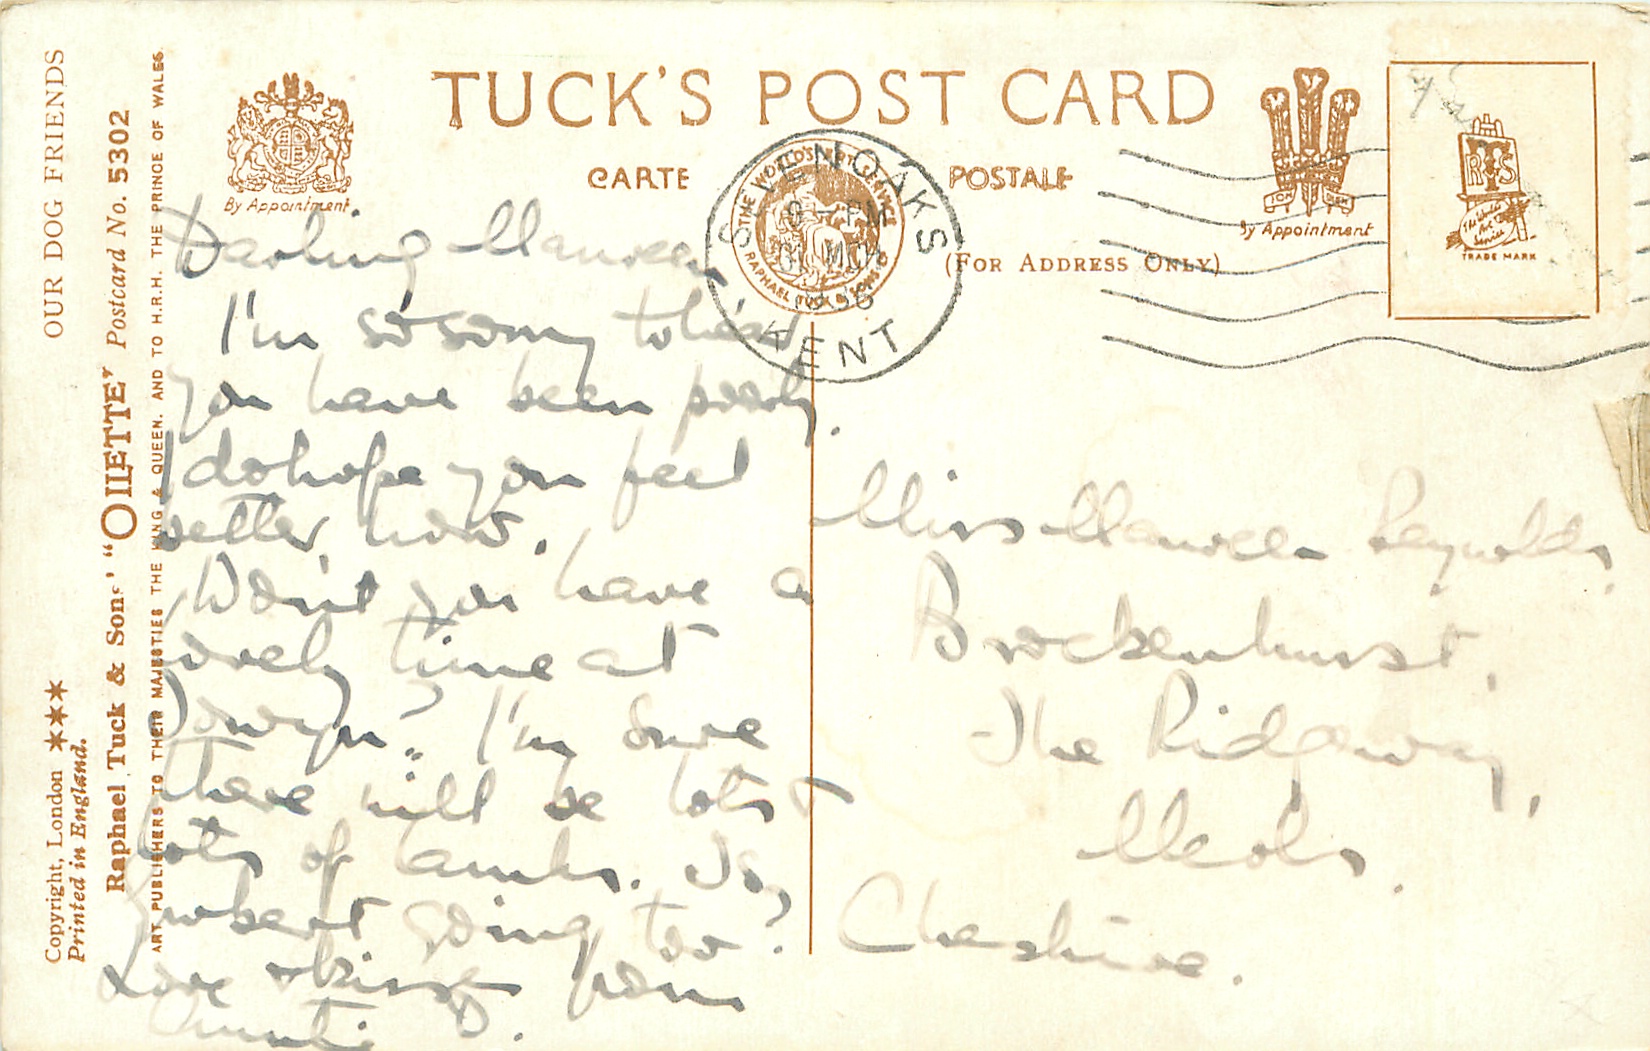 OUR DOG FRIENDS
Copyright, London ★★★
Printed in England.
Raphael Tuck & Sons' "OILETTE" Postcard No. 5302
ART PUBLISHERS TO THEIR MAJESTIES THE KING & QUEEN. AND TO H.R.H. THE PRINCE OF WALES
By Appointment
TUCK'S POST CARD
CARTE POSTALE
THE WORLD'S ART SERVICE
RAPHAEL TUCK & SONS LD
SEVENOAKS
9 - PM
31 MCH
KENT
By Appointment
(FOR ADDRESS ONLY)
RTS
The World's
Art
Service
TRADE MARK
Darling Maureen
I'm so sorry to hear
you have been poorly.
I do hope you feel
better now.
Won't you have a
lovely time at
I'm sure
there will be lots &
lots of lambs. Is
going too?
Love & kisses from
Auntie D.
Miss Maureen Reynolds,
Brockenhurst,
The Ridgeway,
Meols.
Cheshire.